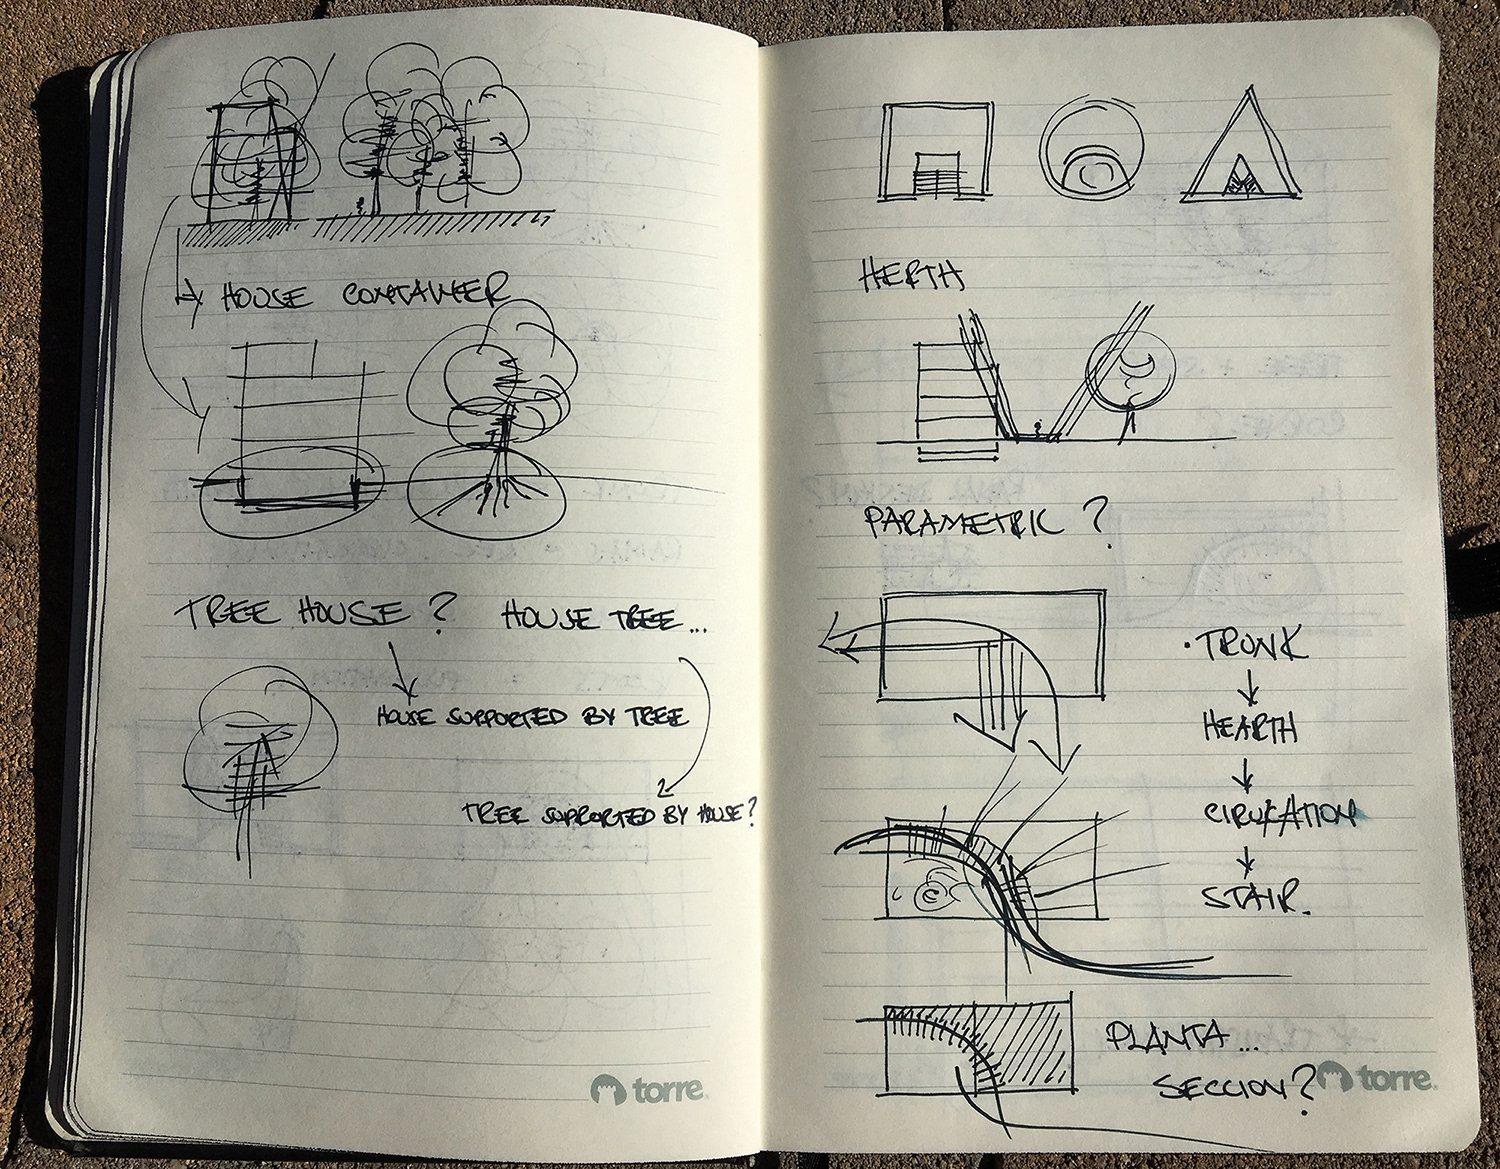 HOUSE CONTAINER
TREE HOUSE? HOUSE TREE...
HOUSE SUPPORTED BY TREE
TREE SUPPORTED BY HOUSE?
torre
HERTH
PARAMETRIC?
· TRONK
HEARTH
CIRCULATION
STAIR.
PLANTA...
SECCION?
torre